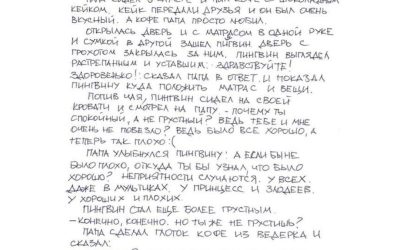 КЕЙКОМ. КЕЙК ПЕРЕДАЛИ ДРУЗЬЯ И ОН БЫЛ ОЧЕНЬ
ВКУСНЫЙ. А КОФЕ ПАПА ПРОСТО ЛЮБИЛ.
ОТКРЫЛАСЬ ДВЕРЬ И С МАТРАСОМ В ОДНОЙ РУКЕ
И СУМКОЙ В ДРУГОЙ ЗАШЕЛ ПИНГВИН. ДВЕРЬ С
ГРОХОТОМ ЗАКРЫЛАСЬ ЗА НИМ. ПИНГВИН ВЫГЛЯДЕЛ
РАСТРЕПАННЫМ И УСТАВШИМ. ЗДРАВСТВУЙТЕ!
ЗДОРОВЕНЬКО! СКАЗАЛ ПАПА В ОТВЕТ. И ПОКАЗАЛ
ПИНГВИНУ КУДА ПОЛОЖИТЬ МАТРАС И ВЕЩИ.
ПОПИВ ЧАЯ, ПИНГВИН СИДЕЛ НА СВОЕЙ
КРОВАТИ И СМОТРЕЛ НА ПАПУ. - ПОЧЕМУ ТЫ
СПОКОЙНЫЙ, А НЕ ГРУСТНЫЙ? ВЕДЬ ТЕБЕ И МНЕ
ОЧЕНЬ НЕ ПОВЕЗЛО? ВЕДЬ БЫЛО ВСЕ ХОРОШО, А
ТЕПЕРЬ ТАК ПЛОХО :(
ПАПА УЛЫБНУЛСЯ ПИНГВИНУ: А ЕСЛИ БЫ НЕ
БЫЛО ПЛОХО, ОТКУДА ТЫ БЫ УЗНАЛ, ЧТО БЫЛО
ХОРОШО? НЕПРИЯТНОСТИ СЛУЧАЮТСЯ. У ВСЕХ.
ДАЖЕ В МУЛЬТИКАХ. У ПРИНЦЕСС И ЗЛОДЕЕВ.
У ХОРОШИХ И ПЛОХИХ.
ПИНГВИН СТАЛ ЕЩЕ БОЛЕЕ ГРУСТНЫМ.
- КОНЕЧНО, КОНЕЧНО. НО ТЫ ЖЕ НЕ ГРУСТИШЬ?
ПАПА СДЕЛАЛ ГЛОТОК КОФЕ ИЗ ВЕДЕРКА И
СКАЗАЛ: